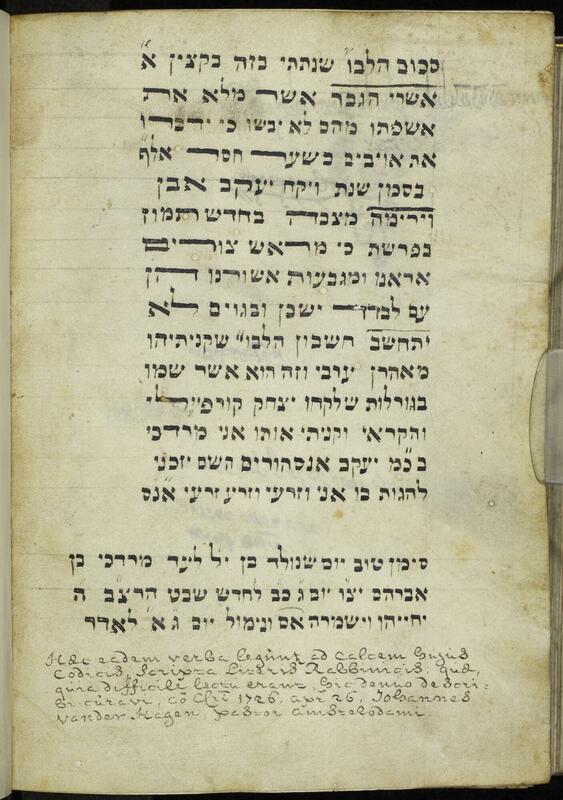 סכוב הלבו" שנתתי בזה בקצין א
אשרי הגבר אשר מלא את
אשפתו מהם לא יבשו כי ידברו
את אויבים בשער חסר אלף
בסמן שנת ויקח יעקב אבן
וירימה מצבה בחדש תמוז
בפרשת כי מראש צורים
אראנו ומגבעות אשורנו הן
עם לבדד ישכן ובגוים לא
יתחשב חשבון הלבו" שקניתיהו
מאהרן עיבי וזה הוא אשר שמו
בגורלות שלקחו יצחק
והקראי וקניתי אותו אני מרדכי
ב כ"מ יעקב אנסהורים השם יזכני
להגות בו אני וזרעי וזרע זרעי אנס
סימן טוב יום שנולד בן י"ל לעד מירדכי בן
אברהם יצו יום ג כב לחדש שבט הרצב ה
יחייהו וישמירה אס ונימול יום ג א לאדר
Hæc eadem verba legunt ad Calcem hujus
Codicis, scripta Literis Rabbinicis, quæ,
quia difficile lectu erant, hic denuo descri-
bi curavi, aō Chr 1726, apr 26, Johannes
vander Hagen, pastor Amstelodami.